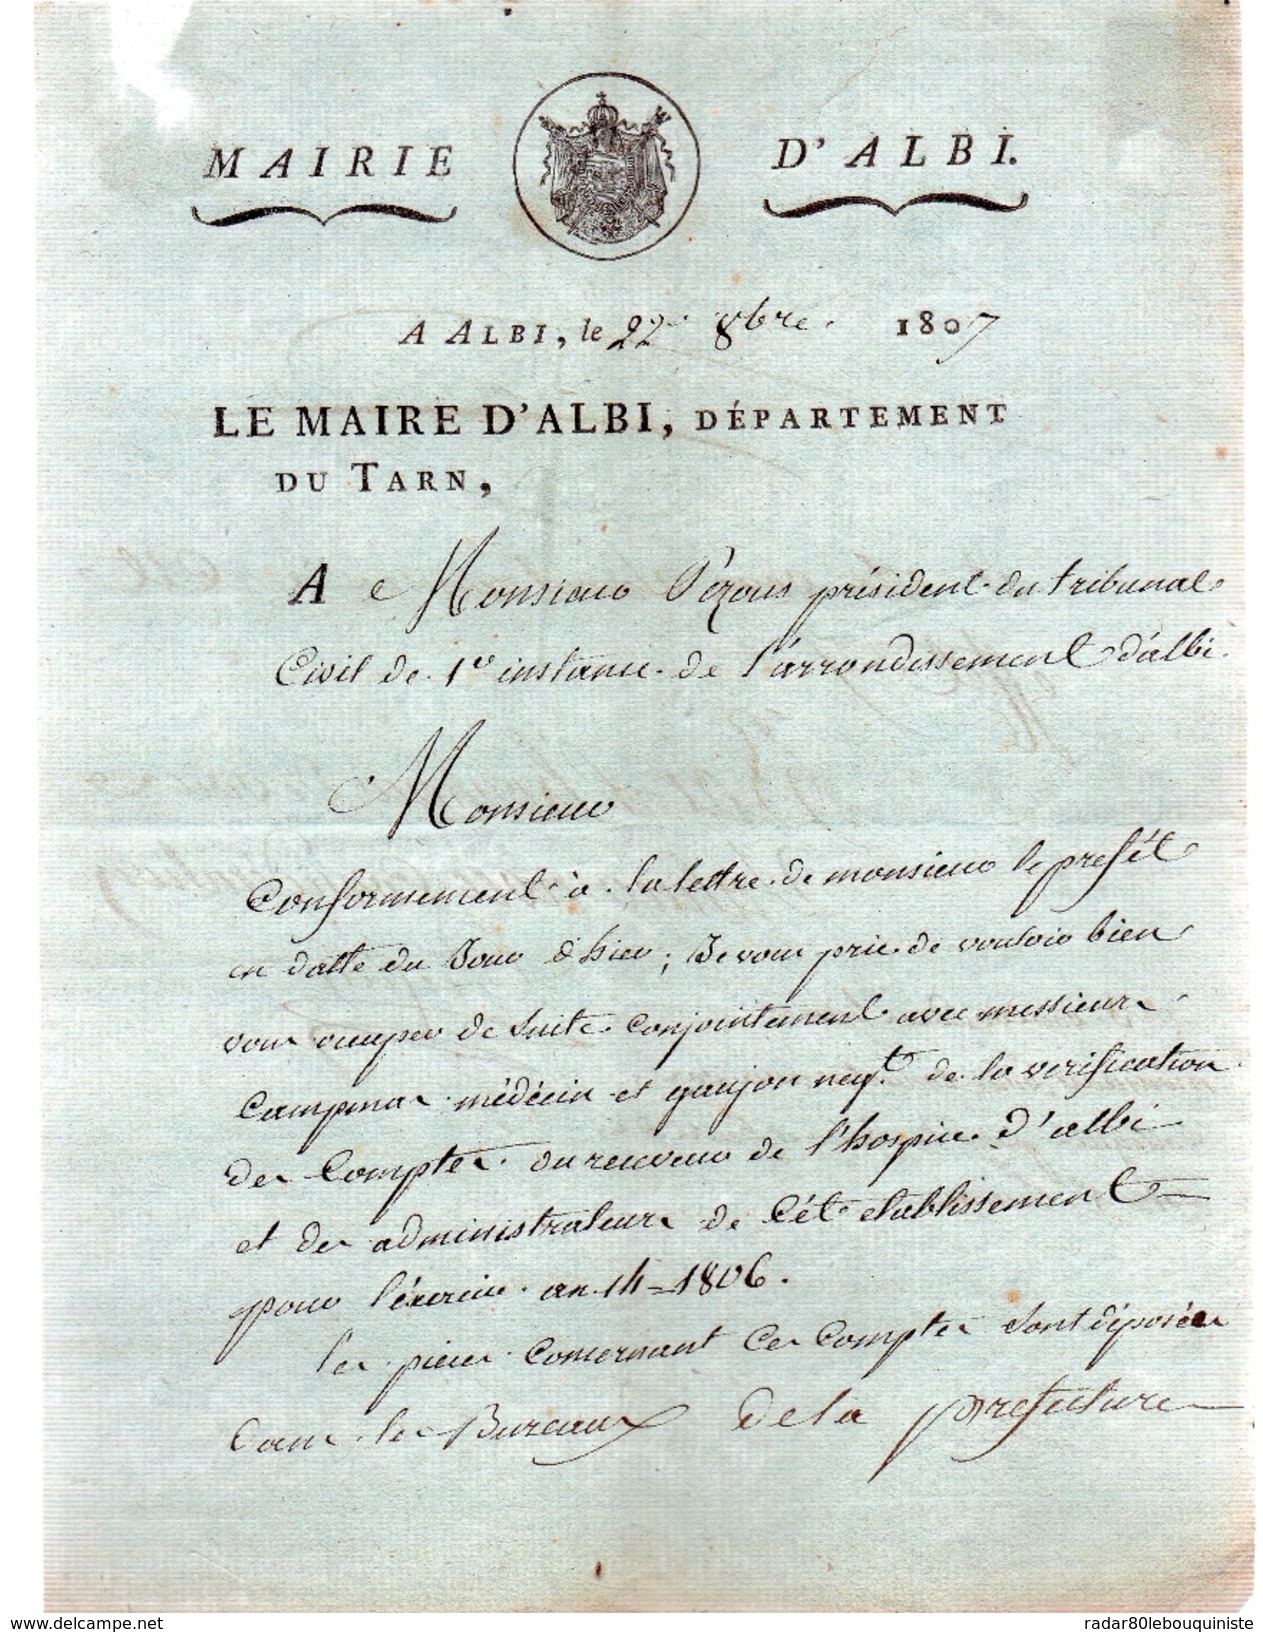 MAIRIE D'ALBI.
A ALBI, le 22 8bre. 1807
LE MAIRE D'ALBI, DÉPARTEMENT
DU TARN,
A Monsieur Pézous président du tribunal
Civil de 1e instance de l'arrondissement d'albi.
Monsieur
Conformement à la lettre de monsieur le prefét
en datte du Jour d'hier ; Je vous prie de vouloir bien
vous occuper de suite conjointement avec messieurs
Campmas médécin et gaujou negt. de la verification
des Comptes du receveur de l'hospice d'albi
et des administrateurs de Cét etablissement
pour l'éxercice an 14=1806.
les pieces concernant Ces Comptes sont déposées
dans les Bureaux de la prefecture
www.delcampe.net radar80lebouquiniste